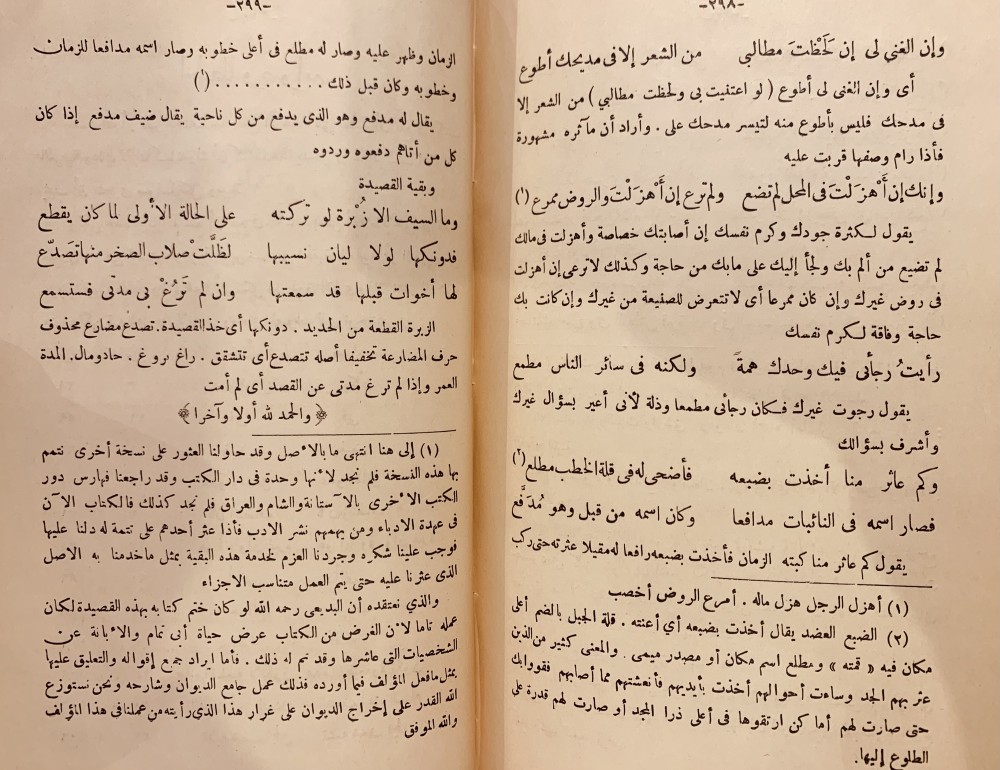 -٢٩٨-
وإن الغني لى إن لَحَظْتَ مطالبى من الشعر إلا فى مديحك أطوع
أى وإن الغنى لى أطوع ( لو اعتنيت بى ولحظت مطالبي ) من الشعر إلا
فى مدحك فليس بأطوع منه لتيسر مدحك على . وأراد أن مآثره مشهورة
فأذا رام وصفها قربت عليه
وإنك إن أَهْزَلْتَ فى المحل لم تضع ولم ترع إن أَهْزَلْتَ والروض ممرع (١)
يقول لكثرة جودك وكرم نفسك إن أصابتك خصاصة وأهزلت فى مالك
لم تضيع من ألم بك ولجأ إليك على مابك من حاجة وكذلك لا ترعى إن اهزلت
فى روض غيرك وإن كان ممرعا أى لاتتعرض للصنيعة من غيرك وإن كانت بك
حاجة وفاقة لكرم نفسك
رأيتُ رجأنى فيك وحدك همةً ولكنه فى سائر الناس مطمع
يقول رجوت غيرك فكان رجأئى مطمعا وذلة لأنى أعير بسؤال غيرك
وأشرف بسؤالك
وكم عاثر منا أخذت بضبعه فأضحى له فى قلة الخطب مطلع (٢)
فصار اسمه فى النائبات مدافعا وكان اسمه من قبل وهو مُدَفَّع
يقول كم عاثر منا كبته الزمان فأخذت بضبعه رافعا له مقيلا عثرته حتى ركب
(١) أهزل الرجل هزل ماله . أمرع الروض أخصب
(٢) الضبع العضد يقال أخذت بضبعه أي أعنته . قلة الجبل بالضم أعلى
مكان فيه « قمته » ومطلع اسم مكان أو مصدر ميمى . والمعنى كثير من الذين
عثر بهم الجد وساءت أحوالهم أخذت بأيديهم فأنعشتهم مما أصابهم فقووا بك
حتى صارت لهم أما كن ارتقوها فى أعلى ذرا المجد أو صارت لهم قدرة على
الطلوع إليها.
-٢٩٩-
الزمان وظهر عليه وصار له مطلع فى أعلى خطوبه وصار اسمه مدافعا للزمان
وخطوبه وكان قبل ذلك . . . . . . . . . . . (١)
يقال له مدفع وهو الذى يدفع من كل ناحية يقال ضيف مدفع إذا كان
كل من أتاهم دفعوه وردوه
وبقية القصيدة
وما السيف الا زُبْرة لو تركته على الحالة الأولى لما كان يقطع
فدونكها لولا ليان نسيبها لظَلَّتْ صلاب الصخر منها تَصَدَّع
لها أخوات قبلها قد سمعتها وان لم تَرُغْ بى مدتى فستسمع
الزبرة القطعة من الحديد . دونكها أى خذ القصيدة. تصدع مضارع محذوف
حرف المضارعة تخفيفا أصله تتصدع أى تتشقق . راغ نروغ . حاد ومال. المدة
العمر وإذا لم ترغ مدتى عن القصد أى لم أمت
﴿ والحمد لله أولا وآخرا ﴾
(١) إلى هنا انتهى ما بالأصل وقد حاولنا العثور على نسخة أخرى نتمم
بها هذه النسخة فلم نجد لأنها وحدة فى دار الكتب وقد راجعنا فهارس دور
الكتب الأخرى بالآستانة والشام والعراق فلم نجد كذلك فالكتاب الآن
فى عهدة الادباء ومن يهمهم نشر الادب فأذا عثر أحدهم على تتمة له دلنا عليها
فوجب علينا شكره وجردنا العزم لخدمة هذه البقية بمثل ماخدمنا به الاصل
الذى عثرنا عليه حتى يتم العمل متناسب الاجزاء
والذي نعتقده أن البديعى رحمه الله لو كان ختم كتابه بهذه القصيدة لكان
عمله تاما لأن الغرض من الكتاب عرض حياة أبى تمام والابانة عن
الشخصيات التى عاشرها وقد تم له ذلك . فأما ايراد جمع إقواله والتعليق عليها
بمثل مافعل المؤلف فيما أورده فذلك عمل جامع الديوان وشارحه ونحن نستوزع
الله القدر على إخراج الديوان على غرار هذا الذى رأيته من عملنا فى هذا المؤلف
والله الموفق